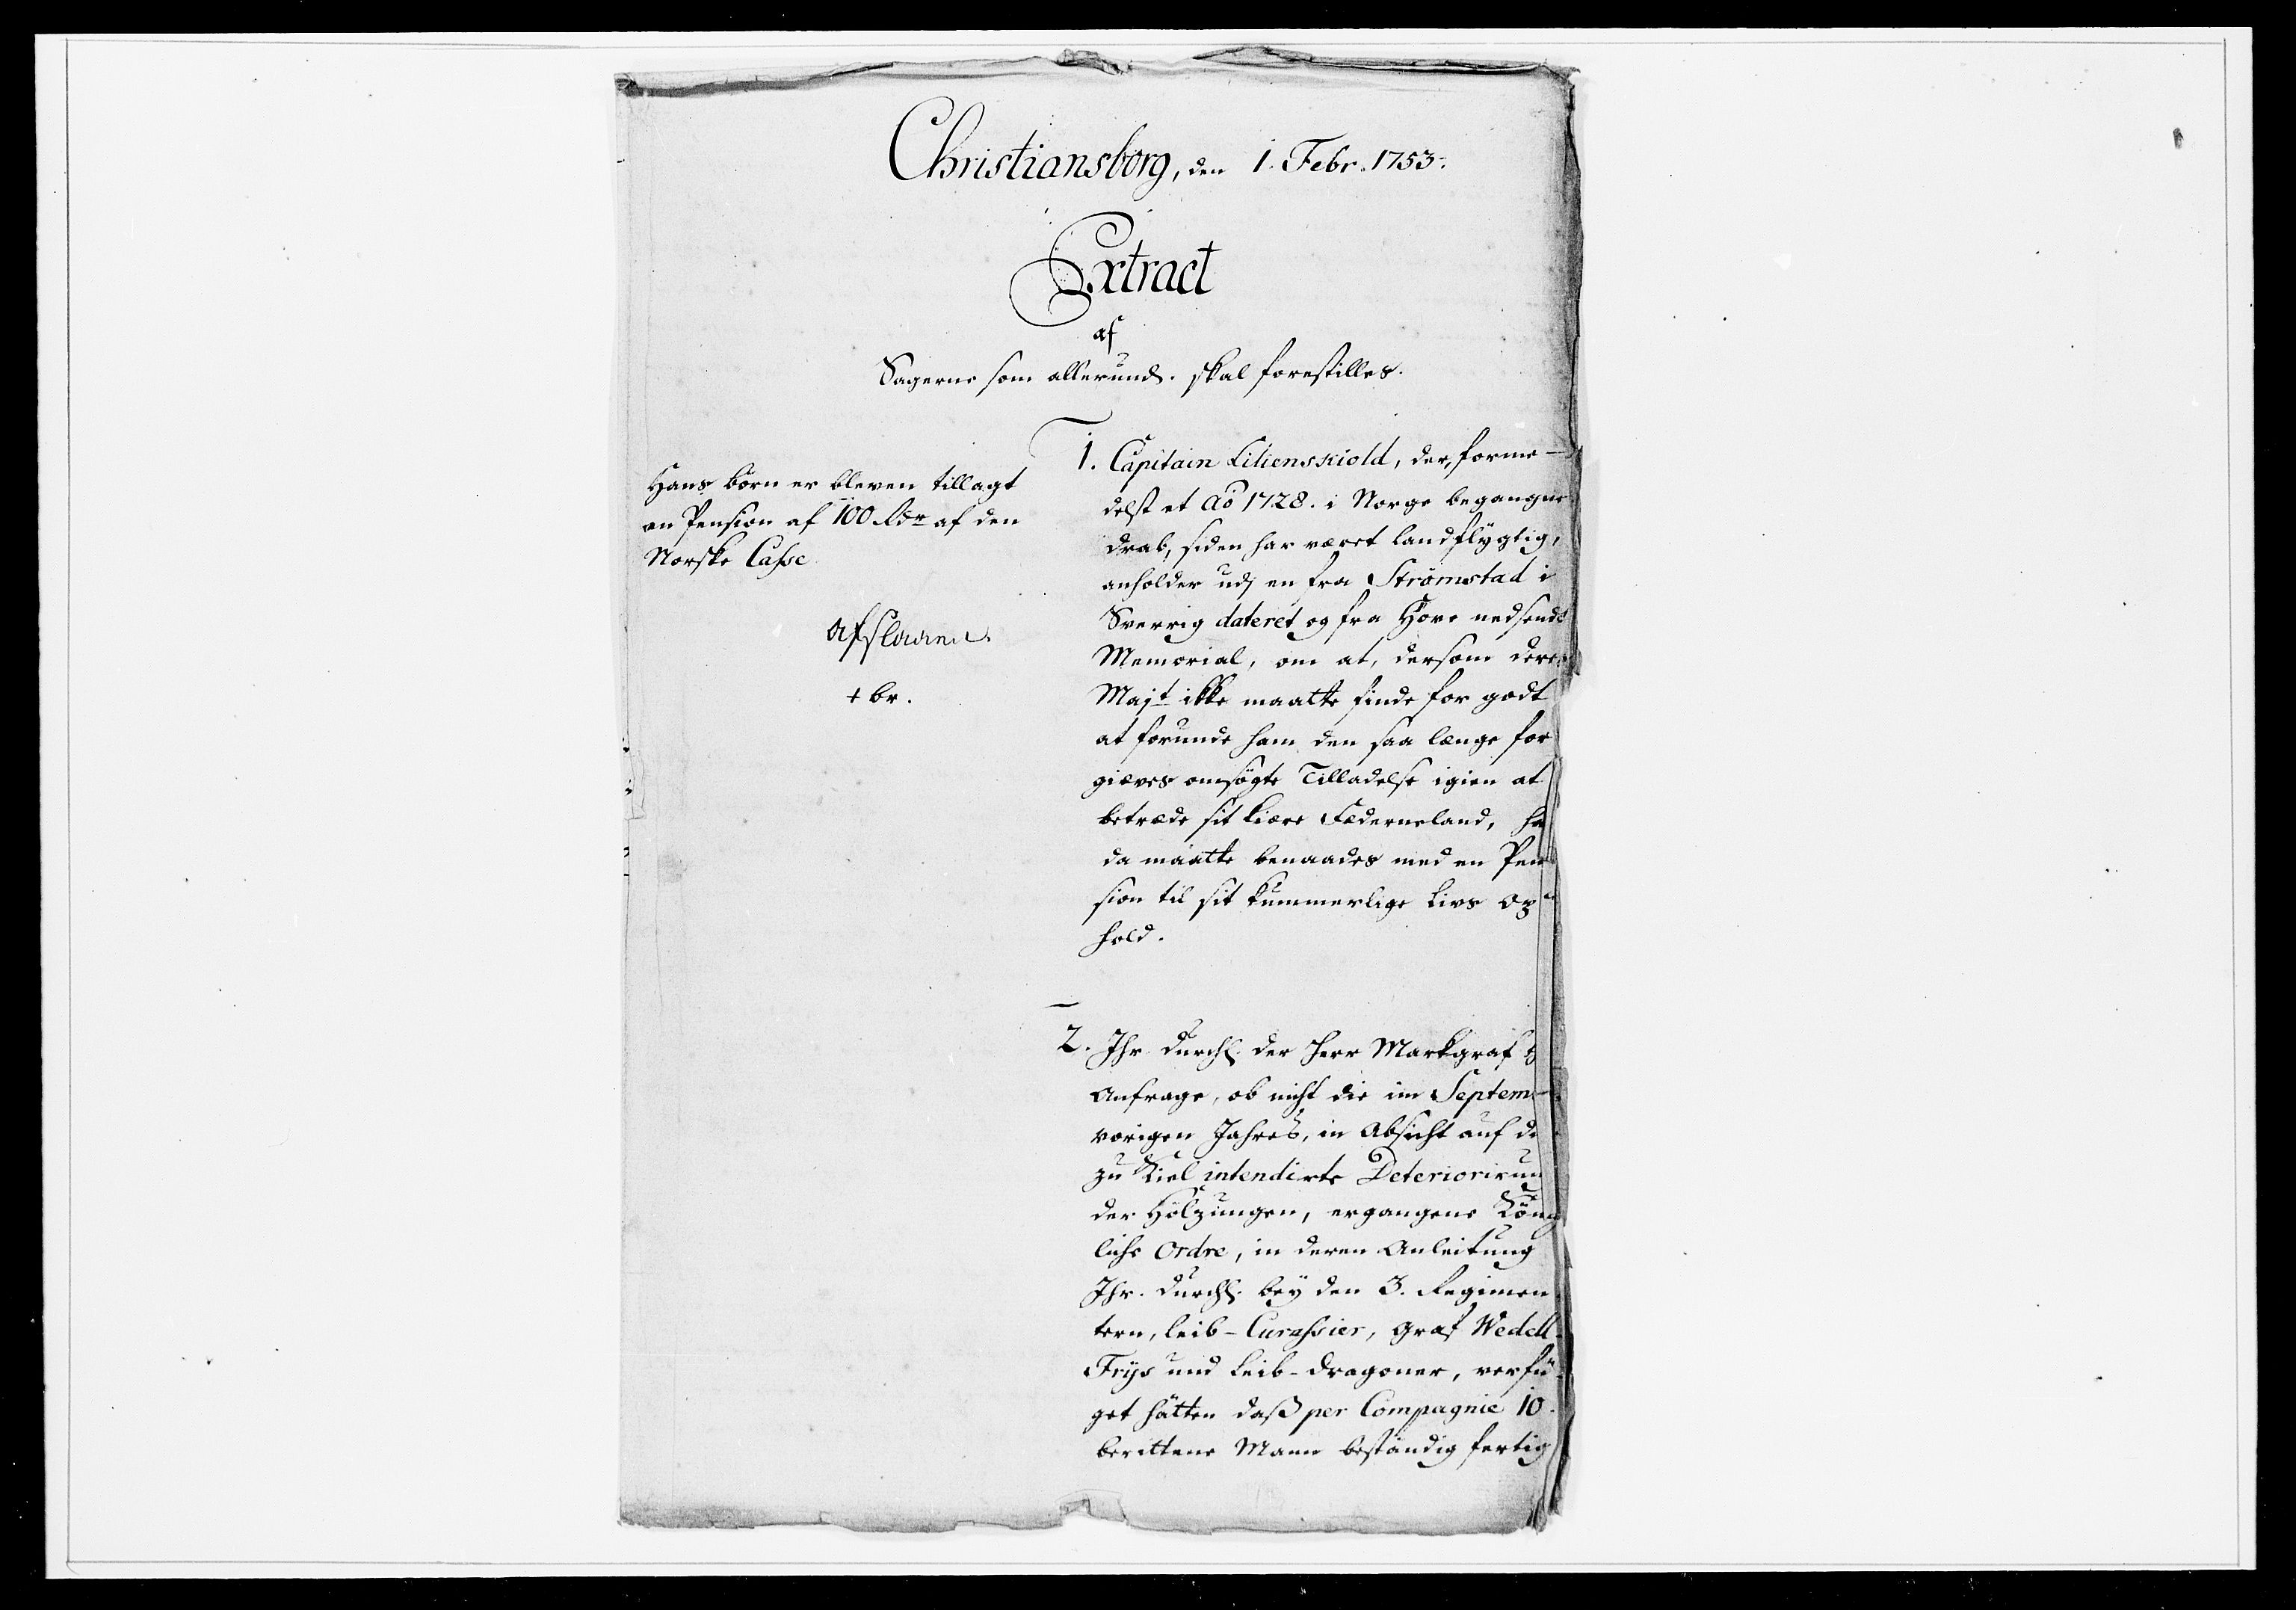 Christiansborg, den 1. Febr. 1753.
Extract
af
Sagerne som allerund. skal forestilles.
Hans börn er bleven tillagt
en Pension af 100 Rdr af den
Norske Casse
Afslaaen.
+ br.
1. Capitain LiliensKiold, der, forme-
delst et Aō 1728. i Norge begangne
Drab, siden har været landflygtig,
anholder udj en fra Strömstad i
Sverrig dateret og fra Hove nedsendt
Memorial, om at, dersom deres
Majt ikke maatte finde for godt
at forunde ham den saa længe for
giæves ansögte Tilladelse igien at
betræde sit kiære Fæderneland, ha
da maatte benaades med en Pen
sion til sit kummerlige Livs Op
hold.
2. Ihr. Durchl. der Herr Markgraf
Anfrage, ob nicht die im Septem-
vorigen Jahres, in Absicht auf di
zu Kiel intendirte Deteriorirun
der Hölzungen, ergangene König
liche Ordre, in deren Anleitung
Ihr. Durchl. bey den 3. Regimen
tern, Leib-Curassier, Graf Wedell-
Frijs und Leib-Dragoner, verfü-
get hätten daß per Compagnie 10.
berittene Mann beständig fertig